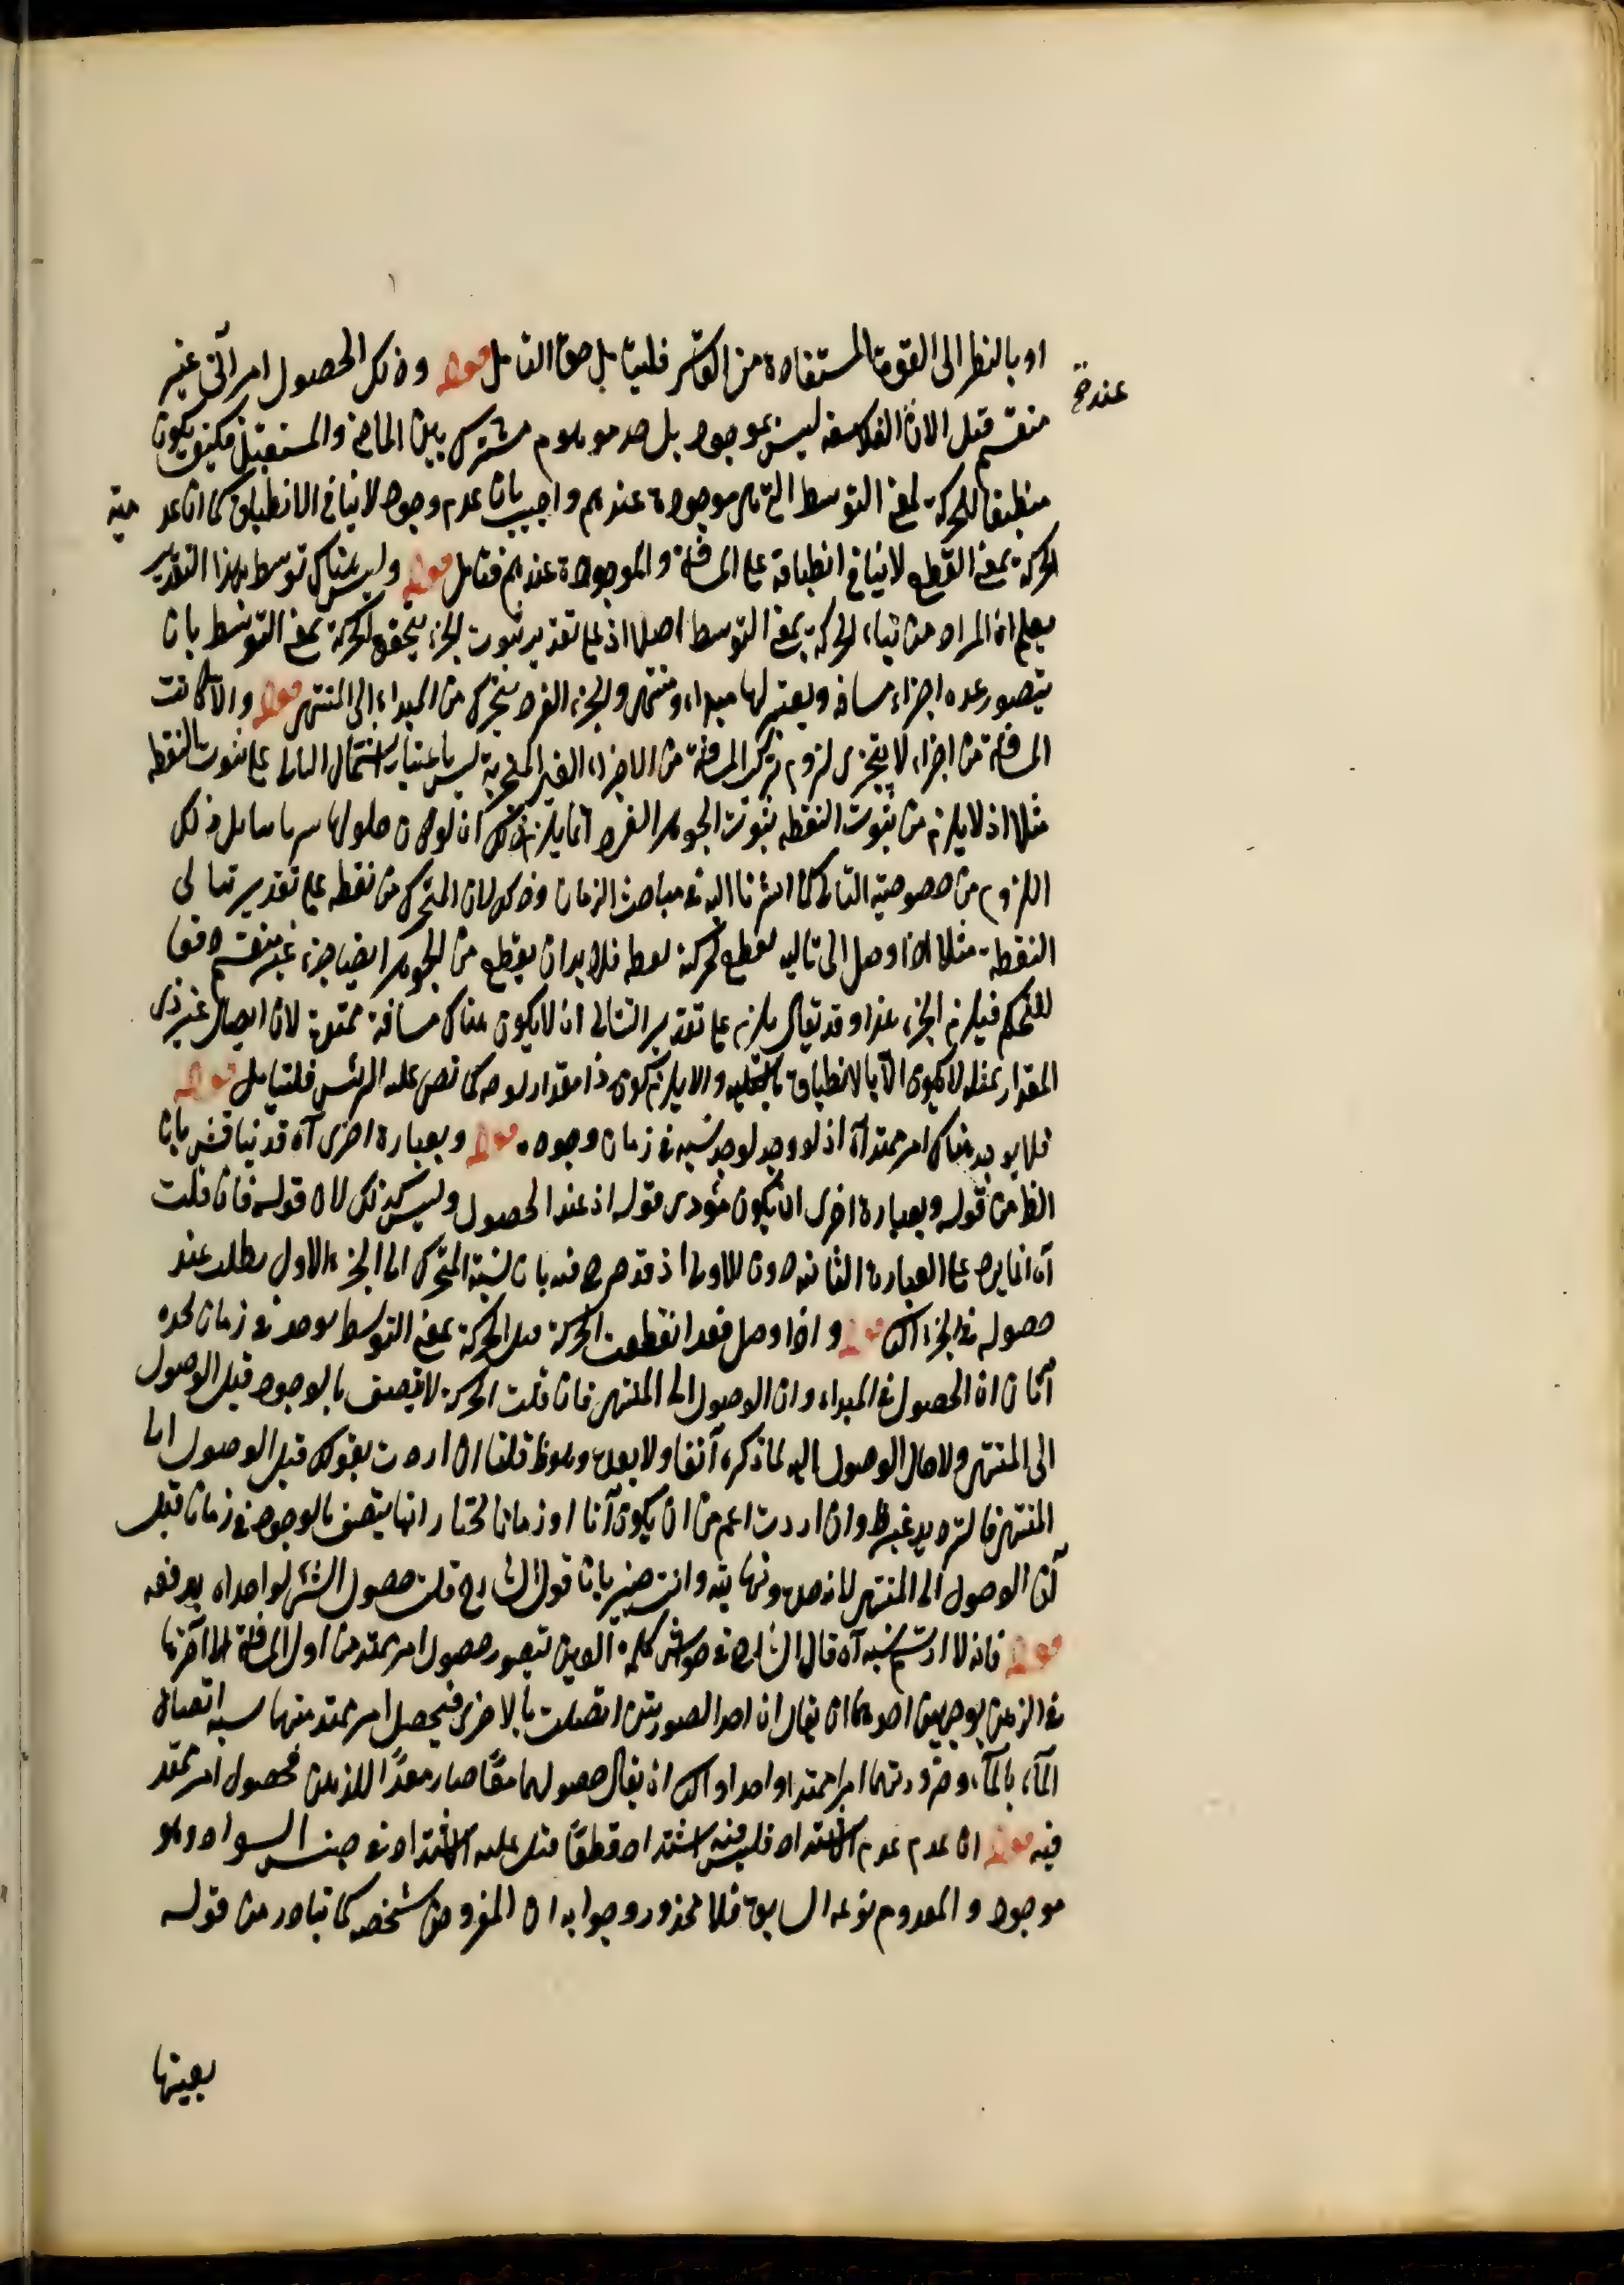 او بالنظر الى القوة المستفادة من القاسر فليتامل حق التامل قوله وذلك الحصول امر آني غير
عندة
منقسم قيل الان الفلاسفه ليس بموجود بل حد موهوم مشترك بين الماضي والمستقبل فكيف يكون
منطبقا للحركة بمعنى التوسط التي هي موجودة عندهم واجيب بان عدم وجود لا ينافي الانطباق كما ان عد مية
الحركة بمعنى القطع لا ينافي انطباقه على المسافة والموجودة عندهم فتامل قوله وليس هناك توسط بهذا التقدير
يعلم ان المراد من الحركة بمعنى التوسط اصلا اذ على تقدير ثبوت الجزء يتحقق الحركة بمعنى التوسط بان
يتصور عدة اجزاء مسافه ويعتبر لها مبداء ومنتهى والجزء الفرد يتحرك من المبداء الى المنتهى قوله والا كانت
المسافة من اجزاء لا يتجزى لزوم تركب المسافة من الاجزاء الغير المتجزية ليس باعتبار اشتمال التالى على ثبوت النقطه
مثلا اذ لا يلزم من ثبوت النقطه ثبوت الجوهر الفرد انما يلزم ذلك ان لو كان حلولها سريا بل ذلك
اللزوم من خصوصية التالى كما اشرنا اليه في مباحث الزمان وذلك لان المتحرك من نقطه على تقدير تتالى
النقطة مثلا اذا وصل الى تاليه يقطع بحركته نقطه فلابد ان يقطع من الجوهر ايضا جزء غير منقسم دفعا
للتحكم فيلزم الجزء هذا وقد يقال يلزم على تقدير التتالى ان لا يكون هناك مسافة ممتدة لان ايصال غير ذى
المقدار بمثله لا يكون الا بالانطباق بالكلية والا يلزم كونه ذا مقدار بوجه كما نص عليه الرئيس فليتامل قوله
فلا يوجد هناك امر ممتد آه اذ لو وجد لوجد شبه في زمان وجوده قوله وبعبارة اخرى آه قد يناقش بان
الظ من قوله وبعبارة اخرى ان يكون مؤدى قوله اذ عند الحصول وليس كذلك لان قوله فان قلت
آه انما يرد على العبارة الثانيه دون الاولى اذ قد صرح فيه بان نسبة المتحرك الى الجزء الاول بطلت عند
حصوله في الجزء الثاني قوله واذا وصل فقد انقطعت الحركة قيل الحركة بمعنى التوسط يوجد في زمان يحده
آنان ان الحصول في المبداء وان الوصول الى المنتهى فان قلت الحركة لا يتصف بالوجود قبل الوصول
الى المنتهى ولا حال الوصول اليه لما ذكره آنفا ولا بعده وهو ظ قلنا ان اردت بقولك قبل الوصول الى
المنتهى فالترديد غير وان اردت اعم من ان يكون آنا او زمانا نختار انها يتصف بالوجود في زمان قبل
آن الوصول الى المنتهى لانه حده ونهايته وانت خبير بان قول الشارح قلت حصول الشئ لواحد اه يدفعه
قوله فانه لا ارتسم شبه آه قال الشارح في حواشي حكمة العين يتصور حصول امر ممتد من اول المسافة الى آخرها
في الزمن بوجهين احدهما ان يقال ان احد الصورتين اتصلت بالاخرى فيحصل امر ممتد منهما شبه اتصال
الماء بالماء وصيرورتهما امرا ممتدا واحدا والثاني ان يقال حصولهما معًا صار معدًّا للذهن لحصول امر ممتد
فيه قوله ان عدم عدم الاشتداد فليس فيه اشتداد قطعًا قيل عليه الاشتداد في جنس السواد وهو
موجود والمعدوم نوعه السابق فلا محذور وجوابه ان المفروض شخصه كما تبادر من قوله
بعينها